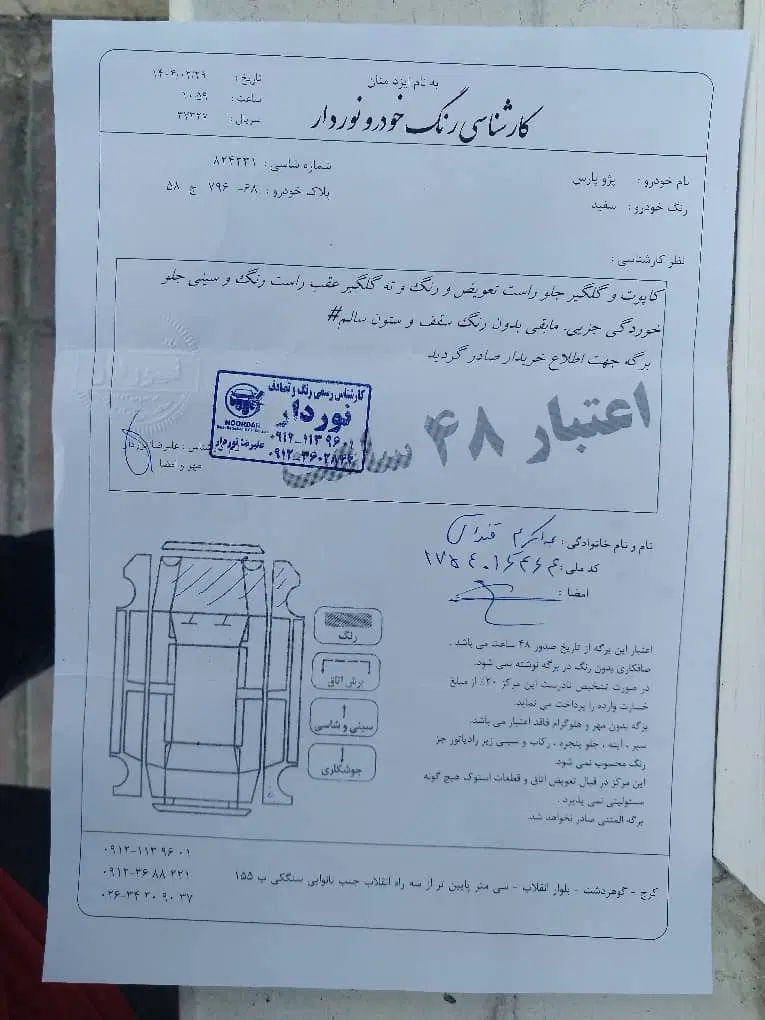 به نام ایزد منان
کارشناسی رنگ خودرو نوردار
تاریخ : ۱۴۰۶/۰۲/۲۹
ساعت : ۱۰:۵۹
سریال : ۳۷۳۲۷
نام خودرو : پژو پارس
رنگ خودرو : سفید
شماره شاسی : ۸۲۴۲۳۱
پلاک خودرو : ۶۸- ۷۹۶ ج ۵۸
نظر کارشناسی :
کاپوت و گلگیر جلو راست تعویض و رنگ و ته گلگیر عقب راست رنگ و سینی جلو
خوردگی جزیی. مابقی بدون رنگ سقف و ستون سالم#
برگه جهت اطلاع خریدار صادر گردید
اعتبار ۴۸
کارشناس رسمی رنگ و تصادف
نوردار
NOORDAR
۰۹۱۲-۱۱۳۹۶۰۱
علیرضا نوردار
علیرضا نوردار
مهر و امضا
نام و نام خانوادگی :
کد ملی :
امضا :
رنگ
برش اتاق
سینی و شاسی
جوشکاری
اعتبار این برگه از تاریخ صدور ۴۸ ساعت می باشد .
صافکاری بدون رنگ در برگه نوشته نمی شود.
در صورت تشخیص نادرست این مرکز ۲۰٪ از مبلغ
خسارت وارده را پرداخت می نماید.
برگه بدون مهر و هلوگرام فاقد اعتبار می باشد.
سپر ، آینه ، جلو پنجره ، رکاب و سینی زیر رادیاتور جز
رنگ محسوب نمی شود.
این مرکز در قبال تعویض اتاق و قطعات استوک هیچ گونه
مسئولیتی نمی پذیرد .
برگه المثنی صادر نخواهد شد.
۰۹۱۲-۱۱۳ ۹۶ ۰۱
۰۹۱۲-۳۶ ۸۸ ۲۲۱
۰۲۶-۳۴ ۲۰ ۹۰ ۳۷
کرج - گوهردشت - بلوار انقلاب - سی متر پایین تر از سه راه انقلاب جنب نانوایی سنگکی پ ۱۵۵